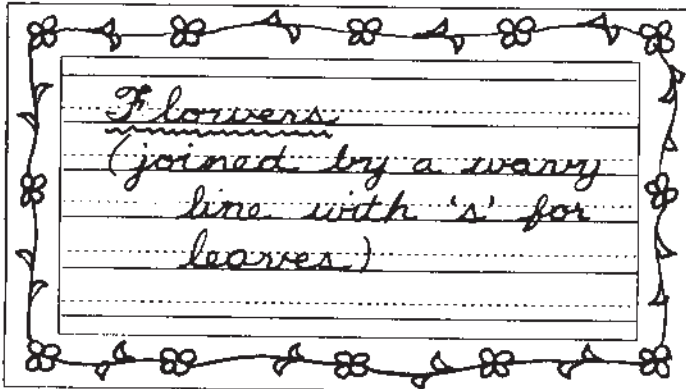 Flowers
(joined by a wavy
line with 's' for
leaves)